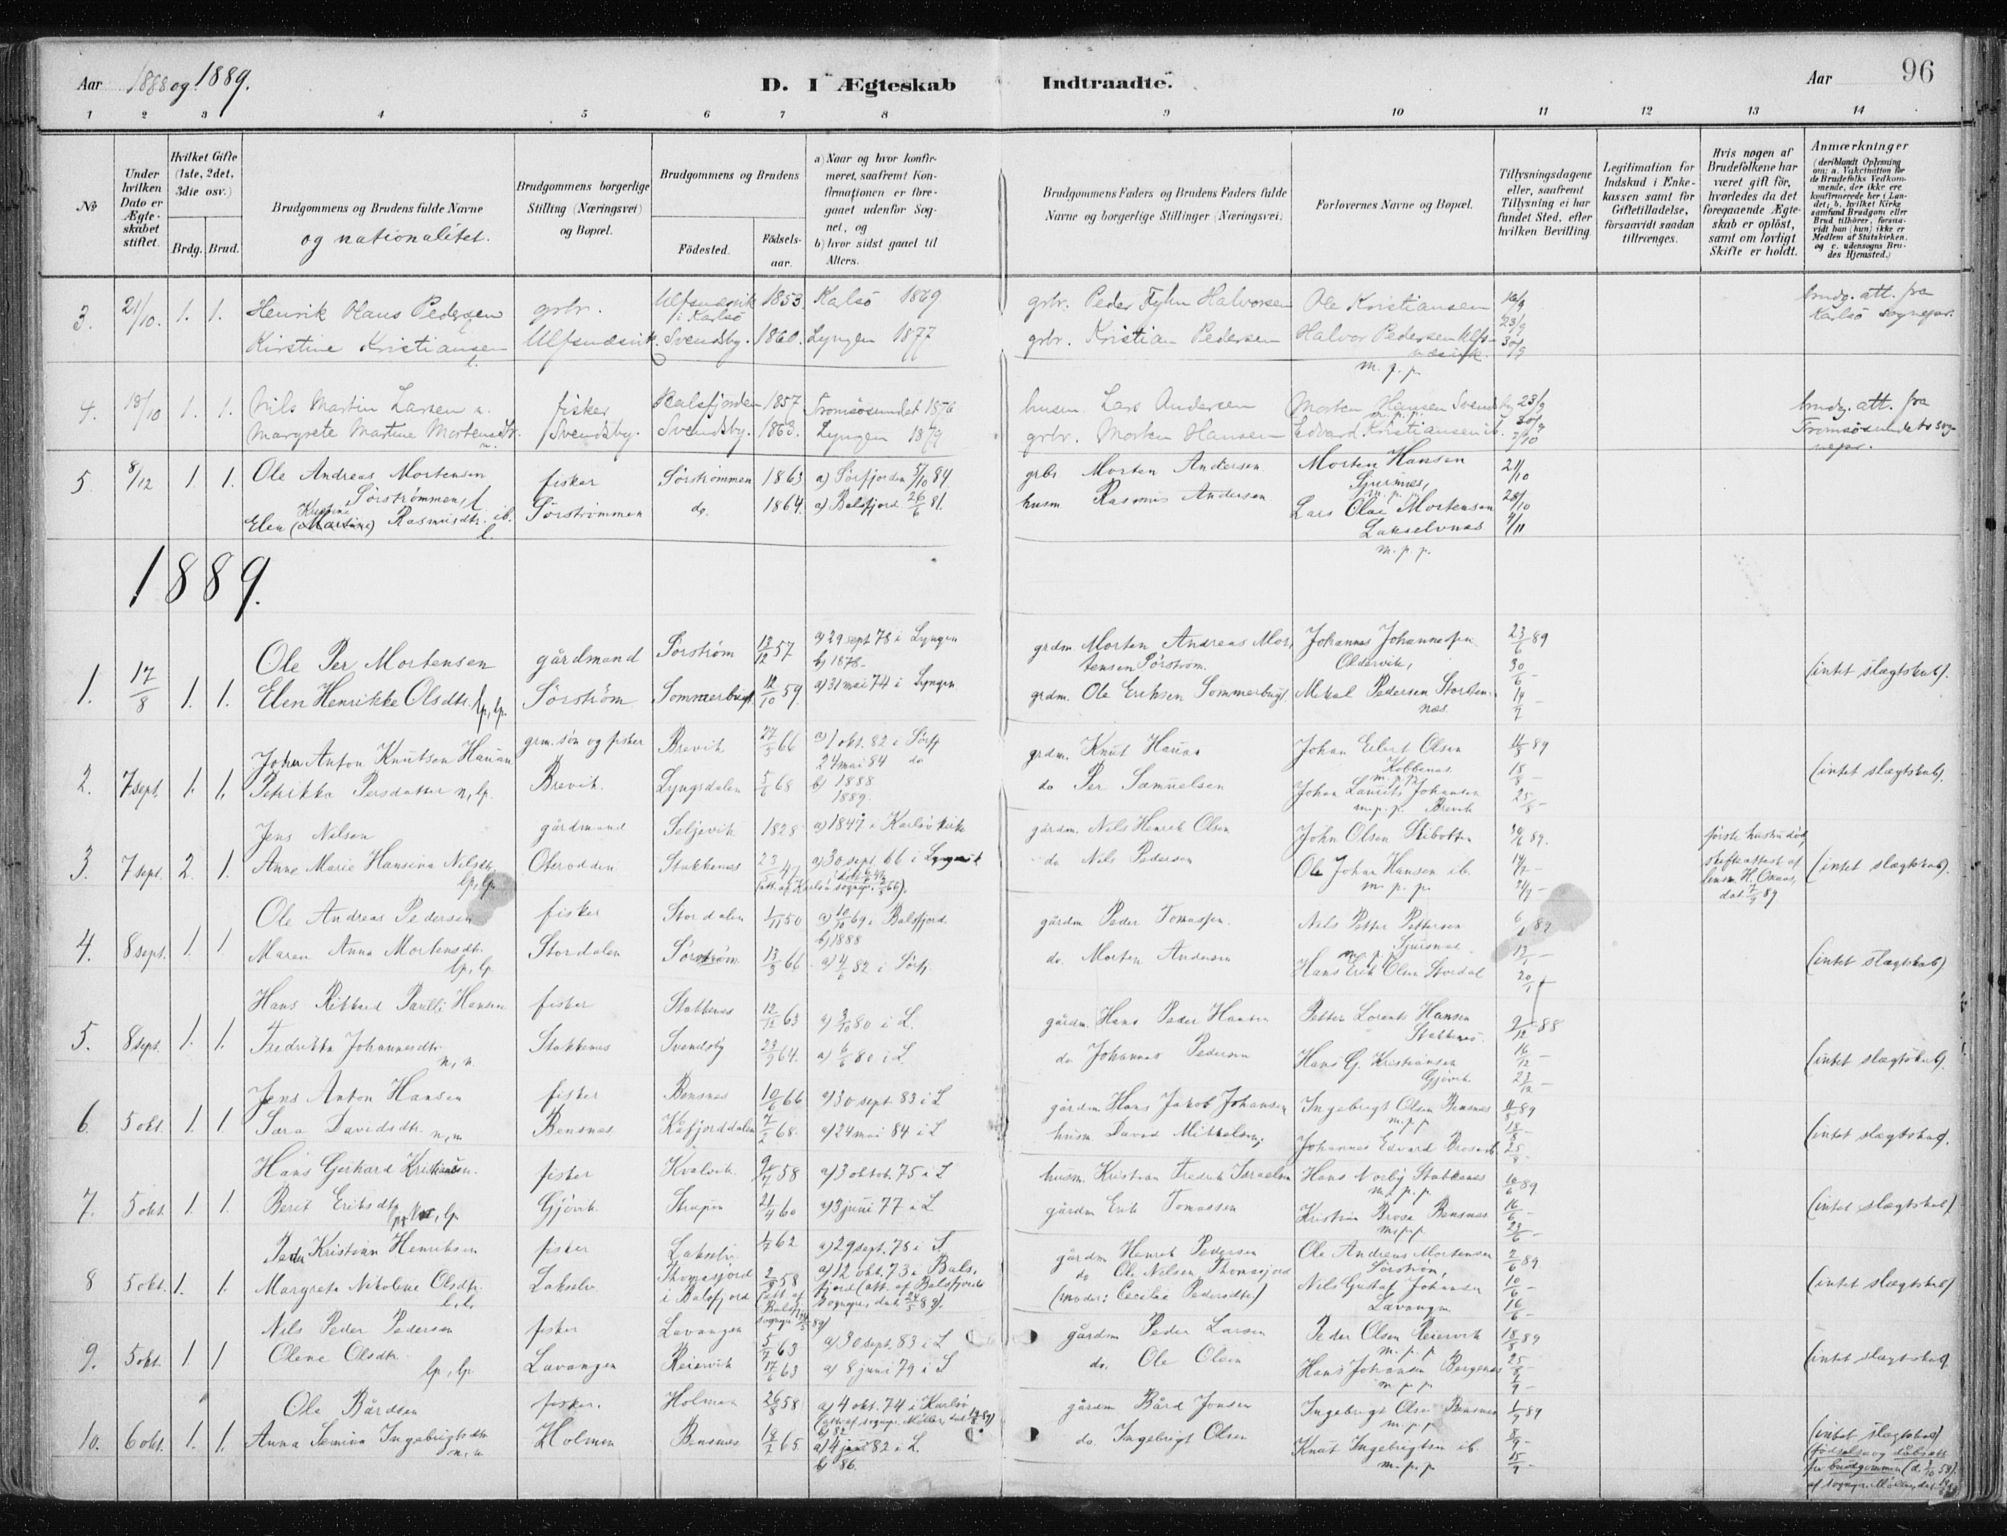 Aar 1888 og 1889.
D. I Ægteskab Indtraadte.
Aar
96
1 2 3 4 5 6 7 8 9 10 11 12 13 14
No
Under hvilken Dato er Ægteskabet stiftet.
Hvilket Gifte (1ste, 2det, 3die osv.)
Brdg. Brud.
Brudgommens og Brudens fulde Navne
og nationalitet.
Brudgommens borgerlige Stilling (Næringsvei) og Bopæl.
Brudgommens og Brudens
Fødested.
Fødselsaar.
a) Naar og hvor konfirmeret, saafremt Konfirmationen er foregaaet udenfor Sognet, og
b) hvor sidst gaaet til Alters.
Brudgommens Faders og Brudens Faders fulde Navne og borgerlige Stillinger (Næringsvei)
Forlovernes Navne og Bopæl.
Tillysningsdagene eller, saafremt Tillysning ei har fundet Sted, efter hvilken Bevilling.
Legitimation for Indskud i Enkekassen samt for Giftetilladelse, forsaavidt saadan tiltrænges.
Hvis nogen af Brudefolkene har været gift før, hvorledes da det foregaaende Ægteskab er opløst, samt om lovligt Skifte er holdt.
Anmærkninger
(deriblandt Oplysning om: a. Vakcination for de Brudefolks Vedkommende, der ikke ere konfirmerede her i Landet; b. hvilket Kirkesamfund Brudgom eller Brud tilhører, forsaavidt han (hun) ikke er Medlem af Statskirken, og c. udensogns Brudes Hjemsted.)
3. 21/10. 1. 1. Henrik Hans Pedersen grbr. Ulfsnæsvik i Karlsø 1853. Karlsø 1869 grbr. Peder Fylm Halvorsen Ole Kristiansen 16/9 brudg. att. fra Karlsø sognepr.
Kirstine Kristiansen Ulfsnæsvik. Svendsby. 1860. Lyngen 1877 grbr. Kristian Pedersen Halvor Pedersen Ulfsnæsvik. 23/9 30/9
m. p. p.
4. 18/10 1. 1. Nils Martin Larsen n. fisker Balsfjorden 1857 Tromsøsundet 1876 husm. Lars Andersen Morten Hansen Svendsby 23/9 brudg. att. fra
Margrete Martine Mortensdtr. Svendsby. Svendsby. 1863. Lyngen 1879 grbr. Morten Hansen Edvard Kristiansen ib. 30/9 7/10 Tromsøsundets sognepr.
5. 8/12 1. 1. Ole Andreas Mortensen fisker Sørstrømmen 1863 a) Sørfjorden 5/10 84 grbr Morten Andersen Morten Hansen 21/10
Sørstrømmen Sjursnæs, m. p. p.
Elen (Martine) Kristine Rasmusdtr. ib. Sørstrømmen do. 1864. a) Balsfjord 26/6 81. husm Rasmus Andersen Lars Olai Mortensen 28/10
Lakselvnæs 4/11
m. p. p.
1889.
1. 17/8 1. 1. Ole Per Mortensen gårdmand Sørstrøm 12/12 57 a) 29 sept 78 i Lyngen b) 1878- grdm. Morten Andreas Mortensen Sørstrøm. Johannes Johannesen Oldervik, 23/6 89 30/6 - (intet slægtskab).
Elen Henrikke Olsdtr. lp, lp. Sørstrøm Sommerbugt 12/10 59. a) 31 mai 74 i Lyngen grdm. Ole Eriksen Sommerbugt Mikal Pedersen Storstennæs 14/7 -
2. 7 sept. 1. 1. Johan Anton Knutsen Hauan grm. søn og fisker Brevik 27/3 66 a) 1 okt. 82 i Sørfj grdm. Knut Hauan Johan Eilert Olsen 11/8 89 (intet slægtskab).
24 mai 84 do Kobbenes m. p. p. 18/8 -
Petrikke Persdatter n, lp. Brevik. Lyngsdalen 5/6 68 b) 1888 1889. do Per Samuelsen Johan Laurits Johansen m. p. p. Brevik 25/8 -
3. 7 sept. 2. 1. Jens Nilsen gårdmand Seljevik 1828 a) 1847 i Karlsø kirke gårdm. Nils Henrik Olsen John Olsen Skibotten 30/6 89. første hustru død, skifteattest af lensm. H. Oxaas, dat. 7/9 89 (intet slægtskab).
Anne Marie Hansine Nilsdtr. lp, lp. Oterodden Stakkenes 23/5 47 a) 30 sept. 66 i Lyngen do Nils Pedersen Ole Johan Hansen ib. m. p. p. 14/7 - 21/7 -
4. 8 sept. 1. 1 Ole Andreas Pedersen fisker Stordalen 1/11 50 a) 10/10 69 i Balsfjord. b) 1888 gårdm Peder Tomassen. Nils Petter Pettersen Sjursnes 6/1 89 (intet slægtskab)
Maren Anna Mortensdtr. lp, lp. Stordalen Sørstrøm 13/3 66. a) 4/6 82 i Sørfj. do. Morten Andersen m. p. p. Hans Erik Olsen Stordal 13/1 - 20/1 -
5. 8 sept. 1. 1. Hans Rikhard Paulli Hansen fisker Stakkenes 12/12 63 a) 3/10 80 i L. gårdm. Hans Peder Hansen Petter Lorents Hansen Stakkenes. 9/12 88
Fredrikke Johannesdtr. n, n Stakkenes Svendsby 23/9 64. a) 6/6 80 i L. do Johannes Pedersen Hans G. Kristiansen Gjøvik 16/12 - 23/12 - (intet slægtskab).
6. 5 okt. 1. 1. Jens Anton Hansen fisker Bensnes 10/6 66 a) 30 sept. 83 i L gårdm Hans Jakob Johansen Ingebrigt Olsen Bensnes m. p. p. 11/8 89
Sara Davidsdtr. n, n Bensnes Kåfjorddalen 7/2 68. a) 24 mai 84 i L husm. David Mikkelsen; Johannes Edvard 18/8 - 25/8 - (intet slægtskab).
7. 5 okt. 1. 1. Hans Gerhard Kristiansen. fisker Kvalvik 9/7 58 a) 3 oktob. 75 i L husm. Kristian Fredrik Israelsen Hans Norby Stakkenes m. p. p. 10/6 89
Berit Eriksdtr. Gjøvik Strupen 21/4 60 a) 3 juni 77 i L gårdm Erik Tomassen Kristian Brose Bensnes m. p. p. 16/6 - 23/6 - (intet slægtskab)
8 5 okt. 1. 1. Peder Kristian Henriksen fisker Lakselv 1/7 62 a) 29 sept. 78 i S. gårdm Henrik Pedersen Ole Andreas Mortensen Sørstrøm, 2/6 89.
Margrete Nikoline Olsdtr. l, l. Lakselv Thomasjord i Balsfjord 2/8 58 a) 12 okt. 73 i Balsfjord (att. af Balsfjords sognepr. dat. 24/5 89). do Ole Nilsen Thomasjord (moder: Cecilie Pedersdtr.) Nils Gustaf Johansen Lavangen 10/6 - 16/6 - (intet slægtskab)
9. 5 okt. 1. 1 Nils Peder Pedersen fisker Lavangen 5/7 63 a) 30 sept. 83 i L gårdm Peder Larsen Peder Olsen Reiervik m. p. p. 18/8 89
Olene Olsdtr. lp, lp. Lavangen Reiervik 17/6 63 a) 8 juni 79 i S do. Ole Olsen Hans Johansen Bergenes m. p. p. 25/8 - 1/9 - (intet slægtskab).
10. 6 okt. 1. 1. Ole Bårdsen fisker. Holmen 26/8 58 a) 4 okt. 74 i Karlsø b) 82 gårdm Bård Jonsen Ingebrigt Olsen Bensnes m. p. p. 1/9 89
Anna Ingebrigtsdtr. n, n Holmen Bensnes 14/2 65 a) 4 juni 82 i L. b) 86. do. Ingebrigt Olsen Knut Ingebrigtsen ib. m. p. p. 8/9 - 15/9 - (intet slægtskab)
fødsels og dåbsatt. for brudgommen